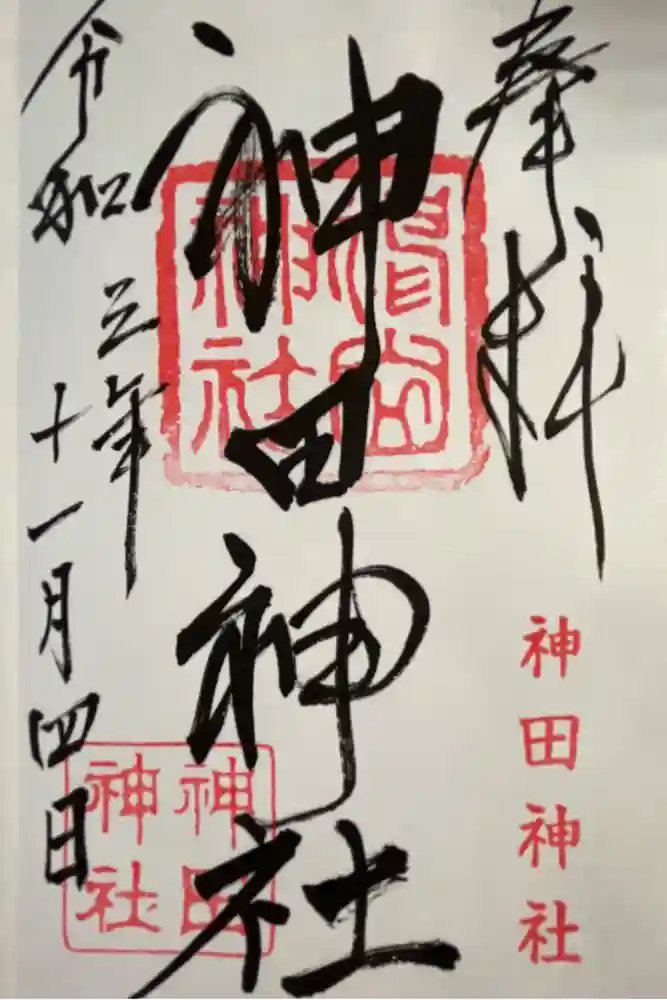 奉拝
神田神社
神田神社
神社
令和三年
十一月四日
神田
神社